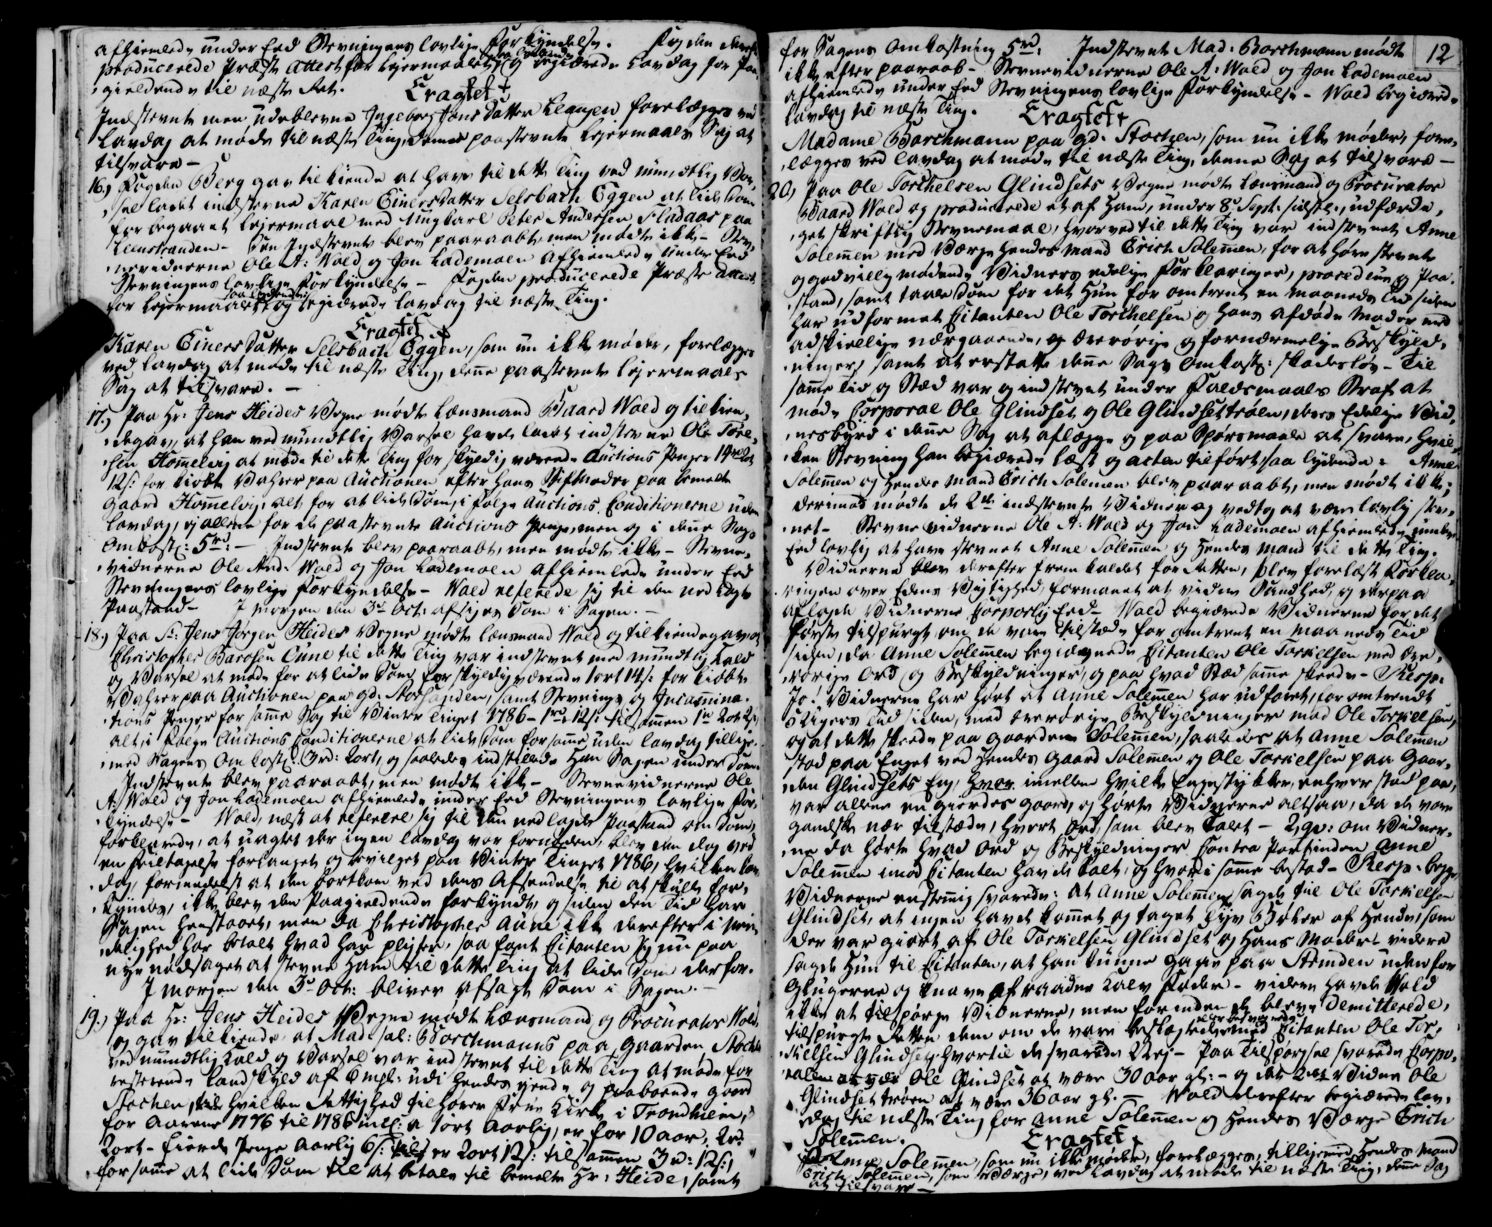 afhiemlede under Eed Stevningens lovlige Forkyndelse. Fogden derefter
producerede Præste Attest for Leyermaalet og begiærede Lavdag for Paa-
gieldende til næste Ret.
Eragtet
Indstevnte men udeblevne Ingeborg Jons Datter Leangen forelægges ved
Lavdag at møde til næste Ting, denne paastevnte Leyermaals Sag at
tilsvare –
16.) Fogden Berg gav tilkiende at have til dette Ting ved mundtlig Var-
sel ladet indstevne Karen Einersdatter Selsbach Eggen at lide Dom
for begaaet Leyermaal med Ungkarl Peter Andersen Fladaas paa
Leenstranden. Den Indstevnte blev paaraabt, men mødte ikke – Stev-
nevidnerne Ole A: Wold og Jon Lademoen afhiemlede under Eed
Stevningens lovlige Forkyndelse – Fogden producerede Præste Attest
for Leyermaalet og begiærede Lavdag til næste Ting.
Eragtet
Karen Einers Datter Selsbach Eggen, som nu ikke møder, forelægges
ved Lavdag at møde til næste Ting, denne paastevnte Leyermaals
Sag at tilsvare. –
17.) Paa Hr: Jens Heides Vegne mødte Lænsmand Baard Wold og tilkien-
degav, at han ved mundtlig Varsel havde ladet indstevne Ole Tore-
sen Hommelvig at møde til dette Ting for skyldig værende Auctions Penger
12 s: for kiøbte Vahrer paa Auctionen efter hans Stifmoder paa bemelte
Gaard Hommelvig, alt for at lide Dom, i Følge Auctions Conditionerne uden
Lavdag, og allene for de paastevnte Auctions Penge, men og i denne Sags
Omkostn: 5 rd: – Indstevnte blev paaraabt, men mødte ikke – Stevne-
vidnerne Ole And: Wold og Jon Lademoen afhiemlede under Eed
Stevningens lovlige Forkyndelse – Wold refererede sig til den nedlagte
Paastand – I Morgen den 3de Oct: afsiges Dom i Sagen. –
18.) Paa Sr: Jens Jørgen Heides Vegne mødte Lænsmand Wold og tilkiendegav at
Christopher Larssen Aune til dette Ting var indstevnt med mundtlig Kald
og Varsel at møde for at lide Dom for skyldig værende 1 ort 14 s: for kiøbte
Vahrer paa Auctionen paa gd: Storsanden, samt Stevnings og Incammina-
tions Penger for samme Sag til Vinter Tinget 1786 –
alt i Følge Auctions Conditionerne at lide Dom for samme uden Lavdag tillige
med Sagens Omkostn: og saaledes indstillede han Sagen under Dom
Indstevnte blev paaraabt, men mødt ikke – Stevnevidnerne Ole
A: Wold og Jon Lademoen afhiemlede under Eed Stevningens lovlige For-
kyndelse – Wold, næst at referere sig til den nedlagde Paastand om Dom,
forklarede, at uagtet der ingen Lavdag var fornøden, blev den dog ved
en Feiltagelse forlanget og bevilget paa Vinter Tinget 1786, hvilken Lav-
dag, formedelst at den bortkom ved dens Afsendelse til at skulle for-
kyndes, ikke blev den Paagieldende forkyndt, og siden den Tid har
Sagen henstaaet, men da Christopher Aune ikke derefter i Min-
delighed har betalt hvad han pligter, saa fant Citanten sig nu paa
nye nødsaget at stevne ham til dette Ting at lide Dom derfor.
I Morgen den 3de Oct: bliver afsagt Dom i Sagen. –
19.) Paa Hr: Jens Heides Vegne mødte Lænsmand og Procurator Wold,
og gav tilkiende, at Mad: sal: Borchmanns paa Gaarden Stochen
ved mundtlig Kald og Varsel var indstevnt til dette Ting at møde for
resterende Landskyld af
Stochen, til hvilken Rettighed tilhører Frue Kirke i Trondhiem,
for Aarene 1776 til 1786 incl: a 1 ort Aarlig, er for 10 Aar,
2 ort – Førings Penge Aarlig 6 s: er 2 ort 12 s: tilsammen 3 rd: 12 s:,
for samme at lide Dom til at betale til bemelte Hr: Heide, samt
12
for Sagens Omkostning 5 rd: Indstevnte Mad: Borchmann mødte
ikke efter paaraab – Stevnevidnerne Ole A: Wold og Jon Lademoen
afhiemlede under Eed Stevningens lovlige Forkyndelse – Wold begiærede
Lavdag til næste Ting.
Eragtet
Madame Borchmann paa gd: Stochen, som nu ikke møder, fore-
lægges ved Lavdag at møde til næste Ting, denne Sag at tilsvare –
20) Paa Ole Torchelsen Glindsets Vegne mødte Lænsmand og Procurator
Baard Wold og producerede et af ham, under 8de Sept: sidstl:, udfærdi-
get skriftlig Stevnemaal, hvorved til dette Ting var indstevnet Anne
Solemen med Værge hendes Mand Erich Solemen, for at høre stevnte
og godvillig mødende Vidners edelige Forklaringer, procedure og Paa-
stand, samt taale Dom for det hun for omtrent en Maaneds Tid siden
har udformet Citanten Ole Torchelsen og hans afdøde Moder med
adskillige nærgaaende og ærerørige og fornærmelige Beskyld-
ninger, samt at erstatte denne Sags Omkostn: skadesløs – Til
samme Tid og Stæd var og indstevnt under Faldsmaals Straf at
møde Corporal Ole Glindset og Ole Glindsetrøen, deres Edelige Vid-
nesbyrd i denne Sag at aflægge og paa Spørsmaale at svare, hvil-
ken Stevning han begiærede læst og acten tilført saa lydende: Anne
Solemen og hendes Mand Erich Solemen blev paaraabt, men mødt ikke;
derimod mødte de 2de indstevnte Vidner og vedtog at være lovlig stev-
net – Stevnevidnerne Ole A: Wold og Jon Lademoen afhiemlede under
Eed lovlig at have stevnet Anne Solemen og hendes Mand til dette Ting.
Vidnerne blev derefter fremkaldet for Retten, blev forelæst Forkla-
ringen over Edens Vigtighed, formanet at vidne Sandhed, og derpaa
aflagde Vidnerne Corporlig Eed – Wold begiærede Vidnerne for det
første tilspurgt om de vare tilstæde for omtrent en Maaneds Tid
siden, da Anne Solemen begiegnede Citanten Ole Torkielsen med ære-
rørige Ord og Beskyldninger, og paa hvad Stæd samme skeede – Resp:
Jo! Vidnerne har hørt at Anne Solemen har udfoert, for omtrendt
Ugers Tid siden, med ærerørige Beskyldninger mod Ole Torkielsen,
og at dette skeede paa Gaarden Solemen, saaledes at Anne Solemen
stod paa Enget ved hendes Gaard Solemen og Ole Torkielsen paa Gaar-
den Glindsets Eng, hvor imellem hvilke Engestykker, enhver stod paa,
var allene en giærdes gaard, og hørte Vidnerne altsaa, da de vare
gandske nær tilstæde, hvert Ord, som blev talt – 2, qv: om Vidner-
ne da hørte hvad Ord og Beskyldninger Contra Partinden Anne
Solemen imod Citanten havde talt, og hvori samme bestod – Resp: begge
Vidnerne eenstemmig svarede: at Anne Solemen sagde til Ole Torkielsen
Glindset, at ingen havde kommet og taget Tyv Koster af hende, som
der var giort af Ole Torkielsen Glindset og hans Moder – videre
sagde hun til Citanten, at han kunde gaae paa Stenden uden for
Glugerne og gnave af raaden Kalv Foder – videre havde Wold
ikke at tilspørge Vidnerne, men forinden de bleve demitterede,
tilspurgte Retten dem om de vare beslægtede eller besvogrede med Citanten Ole Tor-
kielsen Glindset, hvortil de svarede Ney – Paa Tilspørgsel svarede Corpo-
ralen at være Ole Glindset at være 30 Aar gl: – og det 2det Vidne Ole
Glindsetrøen at være 36 Aar gl: – Wold derefter begiærede Lav-
dag til næste Ting for Anne Solemen og hendes Værge Erich
Solemen.
Eragtet
Anne Solemen, som nu ikke møder, forelægges, tilligemed hendes Mand
Erich Solemen, som Værge, ved Lavdag at møde til næste Ting, denne Sag
at tilsvare –